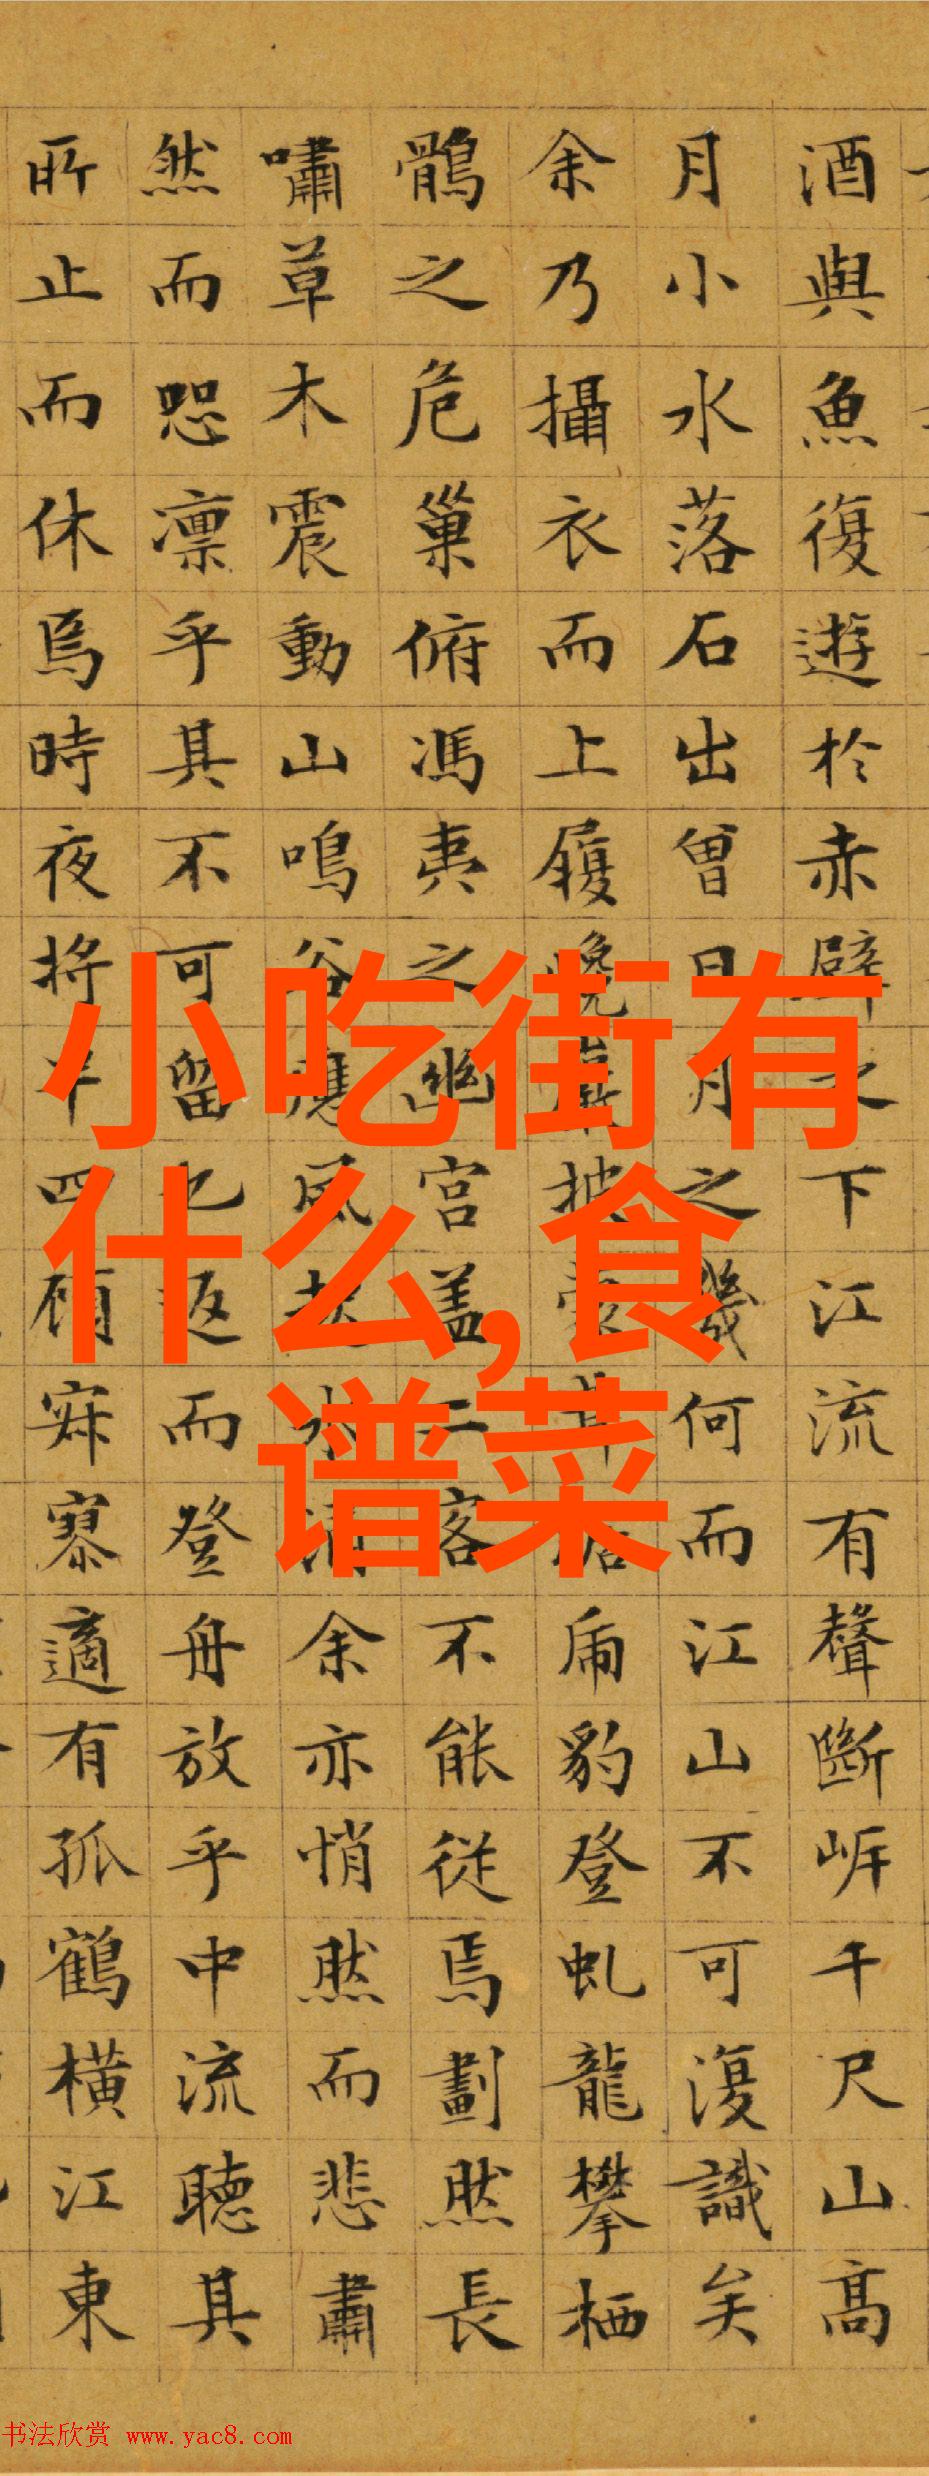 酒與魚復遊於赤壁之下江流有聲斷岸千尺山高
月小水落石出曾日月之幾何而江山不可復識矣
余乃攝衣而上履巉巖披蒙茸踞虎豹登虬龍攀栖
鶻之危巢俯馮夷之幽宮蓋二客不能從焉劃然長
嘯草木震動山鳴谷應風起水涌余亦悄然而悲肅
然而恐凛乎其不可留也返而登舟放乎中流聽其
所止而休焉時夜將半四顧寂寥適有孤鶴橫江東
小吃街有
什么,食
谱菜
书法欣赏 www.yac8.com